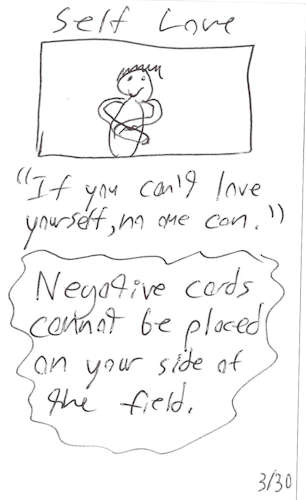 Self Love
"If you can't love
yourself, no one can."
Negative cards
cannot be placed
on your side of
the field.
3/30